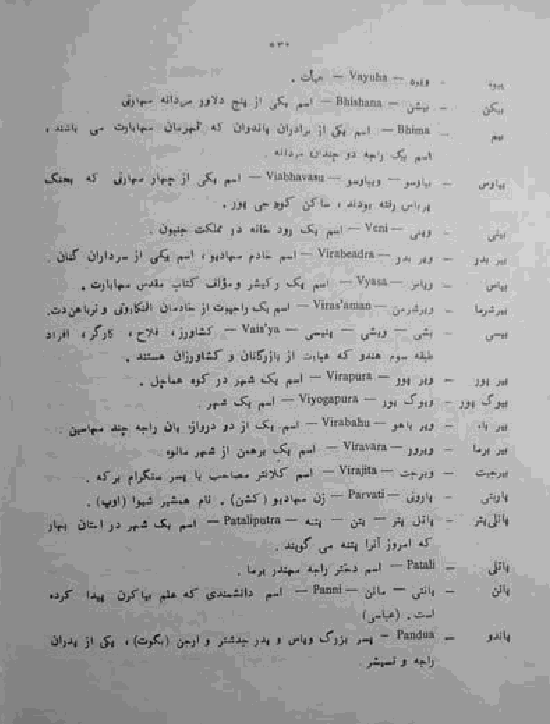 ۵۳۱
ویوه — ویوه — Vayuha — هیأت .
ویکن — بیشن — Bhishana — اسم یکی از پنج دلاور مردانه مهارتی
بیم — Bhima — اسم یکی از برادران پاندوان که قهرمان مهابارت می باشند ،
اسم یک راجه دو چندان مردانه .
بیاوس — بیاوسو — ویباوسو — Viabhavasu — اسم یکی از چهار مهارتی که بجنگ
پرباس رفته بودند ، ساکن کوه جی پور .
بینی — وینی — Veni — اسم یک رود خانه در مملکت جنیون .
بیر بدو — ویر بدو — Virabeadra — اسم خادم مهادیو ، اسم یکی از سرداران کنان .
بیاس — ویاس — Vyasa — اسم یک رکیشر و مؤلف کتاب مقدس مهابارت .
بیرشرما — ویرشرمن — Viras'aman — اسم یک راجپوت از خادمان
بیسی — بشی — ویشی — بنیسی — Vais'ya — کشاورز ، فلاح ، کارگر ، افراد
طبقه سوم هندو که عبارت از بازرگانان و کشاورزان هستند .
بیر پور — ویر پور — Virapura — اسم یک شهر در کوه هماچل .
بیوگ پور — ویوگ پور — Viyogapura — اسم یک شهر .
بیر باه — ویر باهو — Virabahu — اسم یک از دو دروازه بان راجه چند مهاسین .
بیر برما — ویرور — Viravara — اسم یک برهمن از شهر مالوه
بیرجیت — ویرجت — Virajita — اسم کلانتر مصاحب با پسر سنگرام برکه .
پاربتی — پاروتی — Parvati — زن مهادیو (کشن) . نام همشیر شیوا (اوپ) .
پاتلی‌پتر — پاتل پتر — پتن — پتنه — Pataliputra — اسم یک شهر در استان بهار
که امروز آنرا پتنه می گویند .
پاتلی — Patali — اسم دختر راجه مهندر برما .
پانن — پانتی — مانن — Panni — اسم دانشمندی که علم بیاکرن پیدا کرده
است . (عباسی)
پاندو — Pandua — پسر بزرگ ویاس و پدر جدشتر و ارجن (بگوت) ، یکی از پدران
راجه و